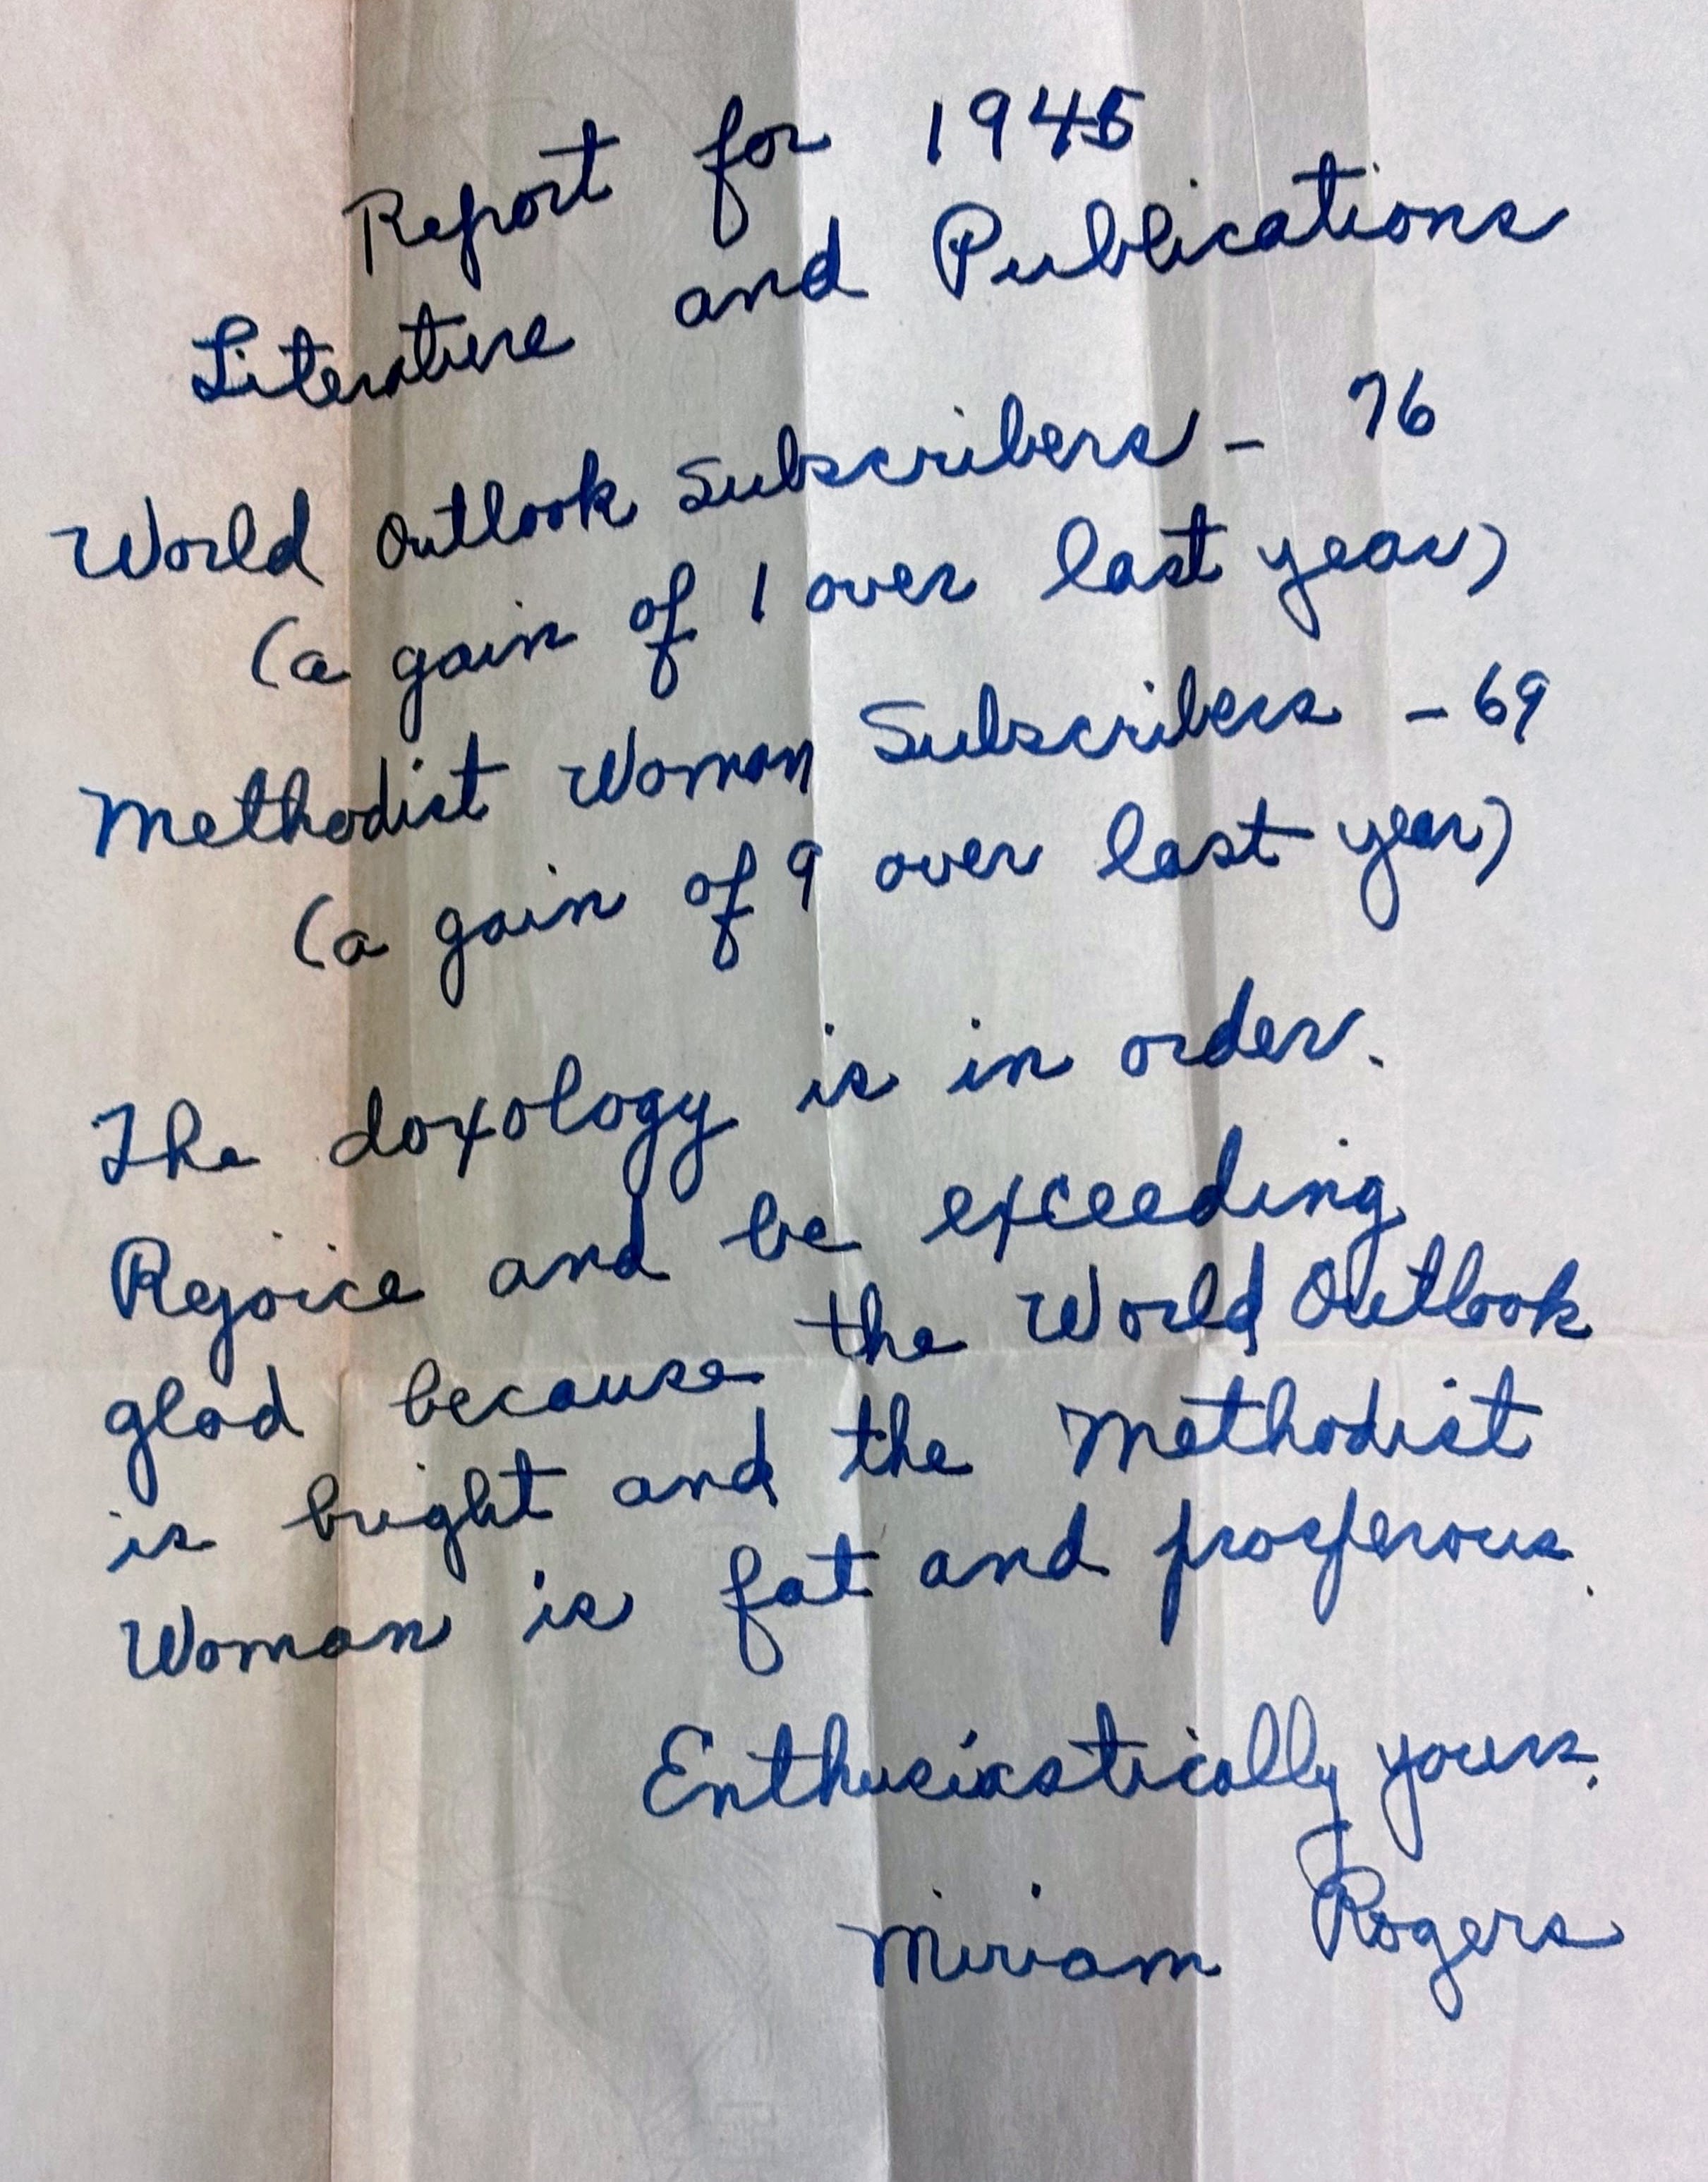 Report for 1945
Literature and Publications
World Outlook Subscribers - 76
(a gain of 1 over last year)
Methodist Woman Subscribers - 69
(a gain of 9 over last year)
The doxology is in order.
Rejoice and be exceeding
glad because the World Outlook
is bright and the Methodist
Woman is fat and prosperous.
Enthusiastically yours,
Miriam Rogers